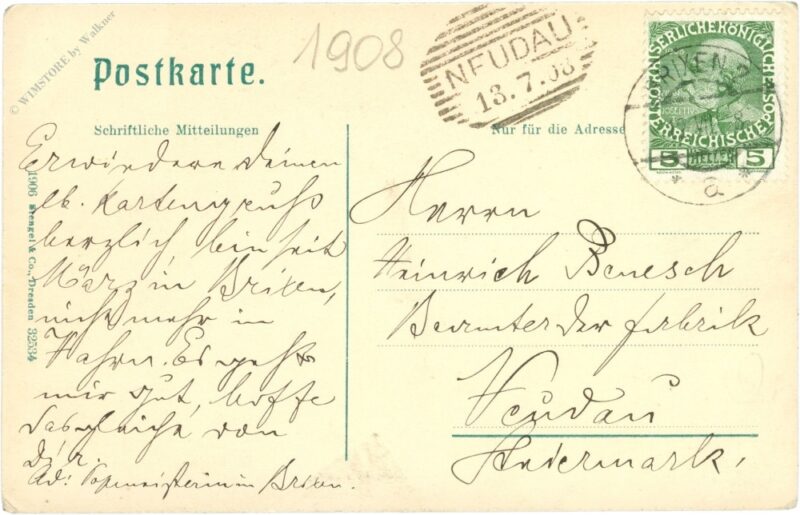 © WIMSTORE by Walkner
1908
Postkarte.
NEUDAU
13.7.08
BRIXEN 2
a
KAISERLICHEKÖNIGLICHE
ÖSTERREICHISCHE
5 HELLER 5
Schriftliche Mitteilungen
Nur für die Adresse
1906 Stengel & Co., Dresden 32534
Erwiedere Deinen
lb. Kartengruß
herzlich bin seit
März in Brixen,
nicht mehr in
Vahrn. Es geht
mir gut, hoffe
dasgleiche von
Dir.
Ad: Postmeisterin in Brixen.
Herrn
Heinrich Benesch
Beamter der Fabrik
Neudau
Steiermark.